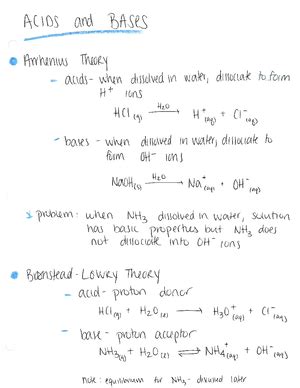 ACIDS and BASES
• Arrhenius Theory
- acids - when dissolved in water, dissociate to form
H⁺ ions
HCl(g) —H₂O→ H⁺(aq) + Cl⁻(aq)
- bases - when dissolved in water, dissociate to
form OH⁻ ions
NaOH(s) —H₂O→ Na⁺(aq) + OH⁻(aq)
* problem: when NH₃ dissolved in water, solution
has basic properties but NH₃ does
not dissociate into OH⁻ ions
• Brønstead-Lowry Theory
- acid - proton donor
HCl(g) + H₂O(l) → H₃O⁺(aq) + Cl⁻(aq)
- base - proton acceptor
NH₃(g) + H₂O(l) ⇌ NH₄⁺(aq) + OH⁻(aq)
note: equilibrium for NH₃ - discussed later